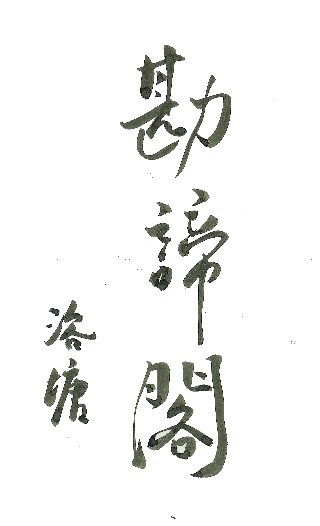 勘諦閣
洛塘